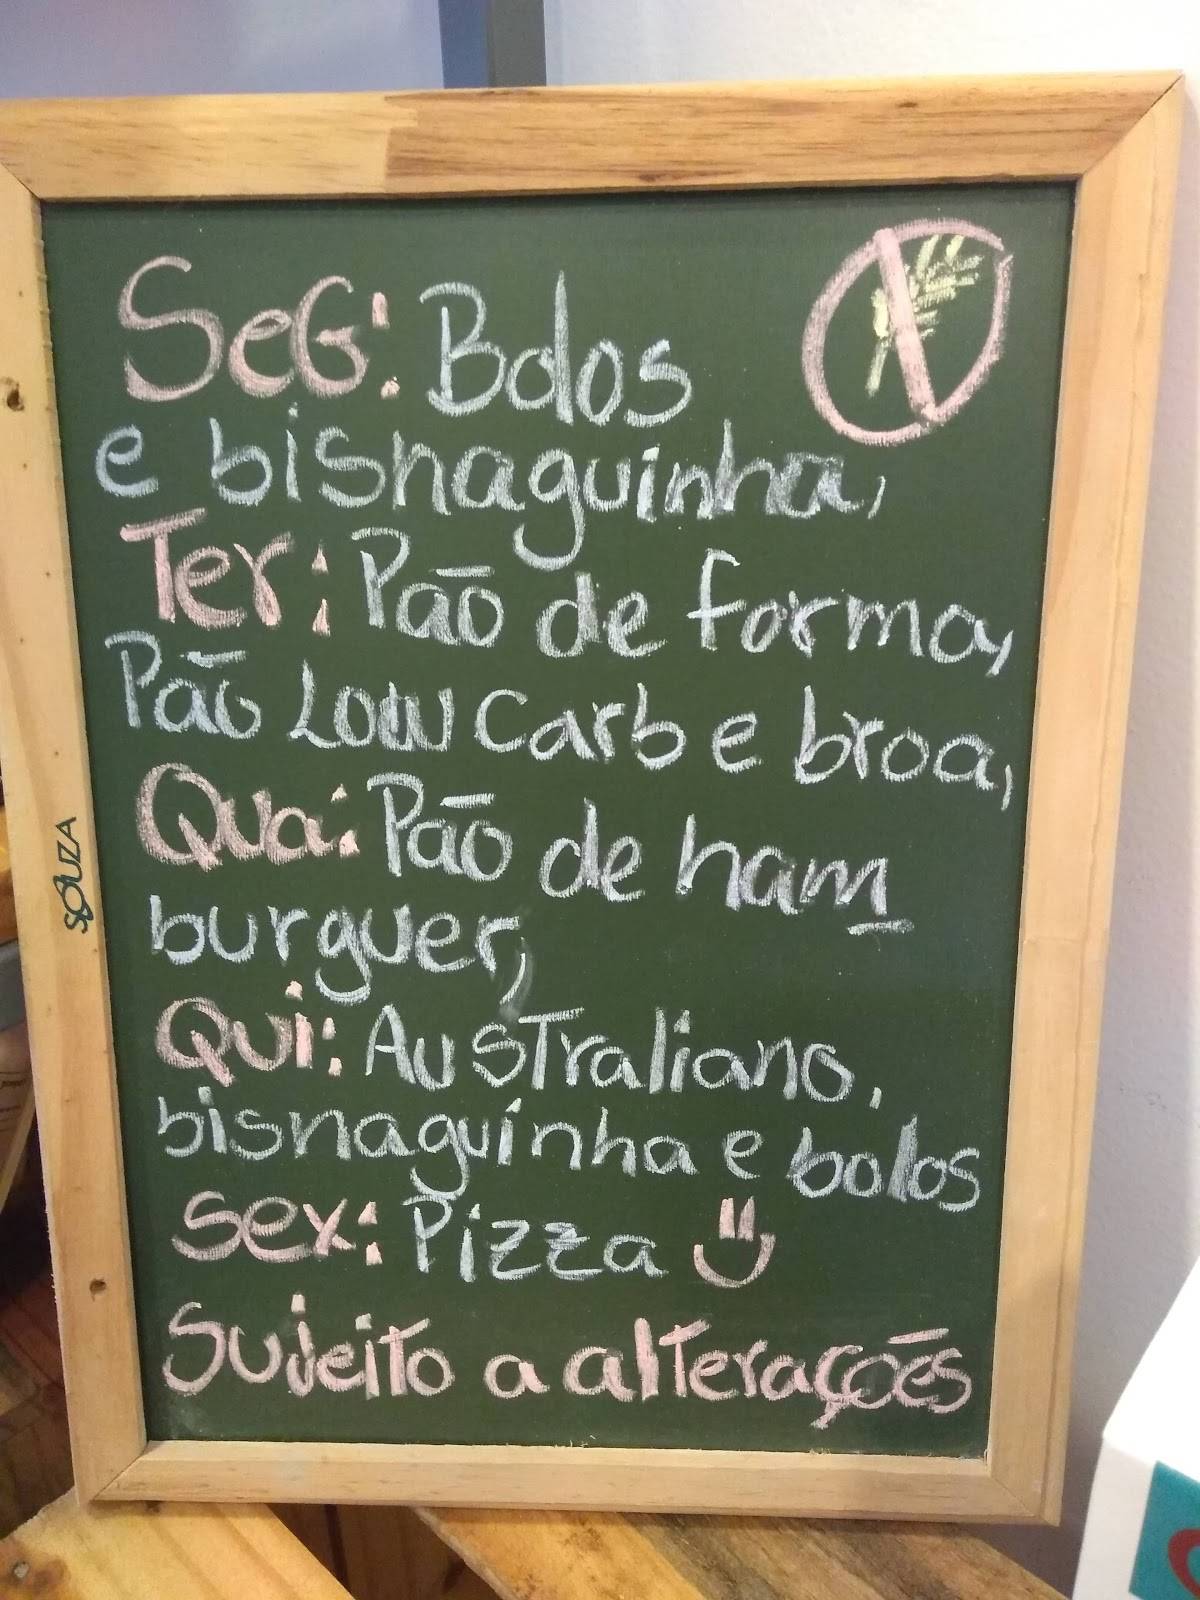 SeG: Bolos
e bisnaguinha,
Ter: Pão de forma,
Pão Low Carb e broa,
Qua: Pão de ham
burguer,
Qui: Australiano,
bisnaguinha e bolos
Sex: Pizza
Sujeito a alterações
SOUZA